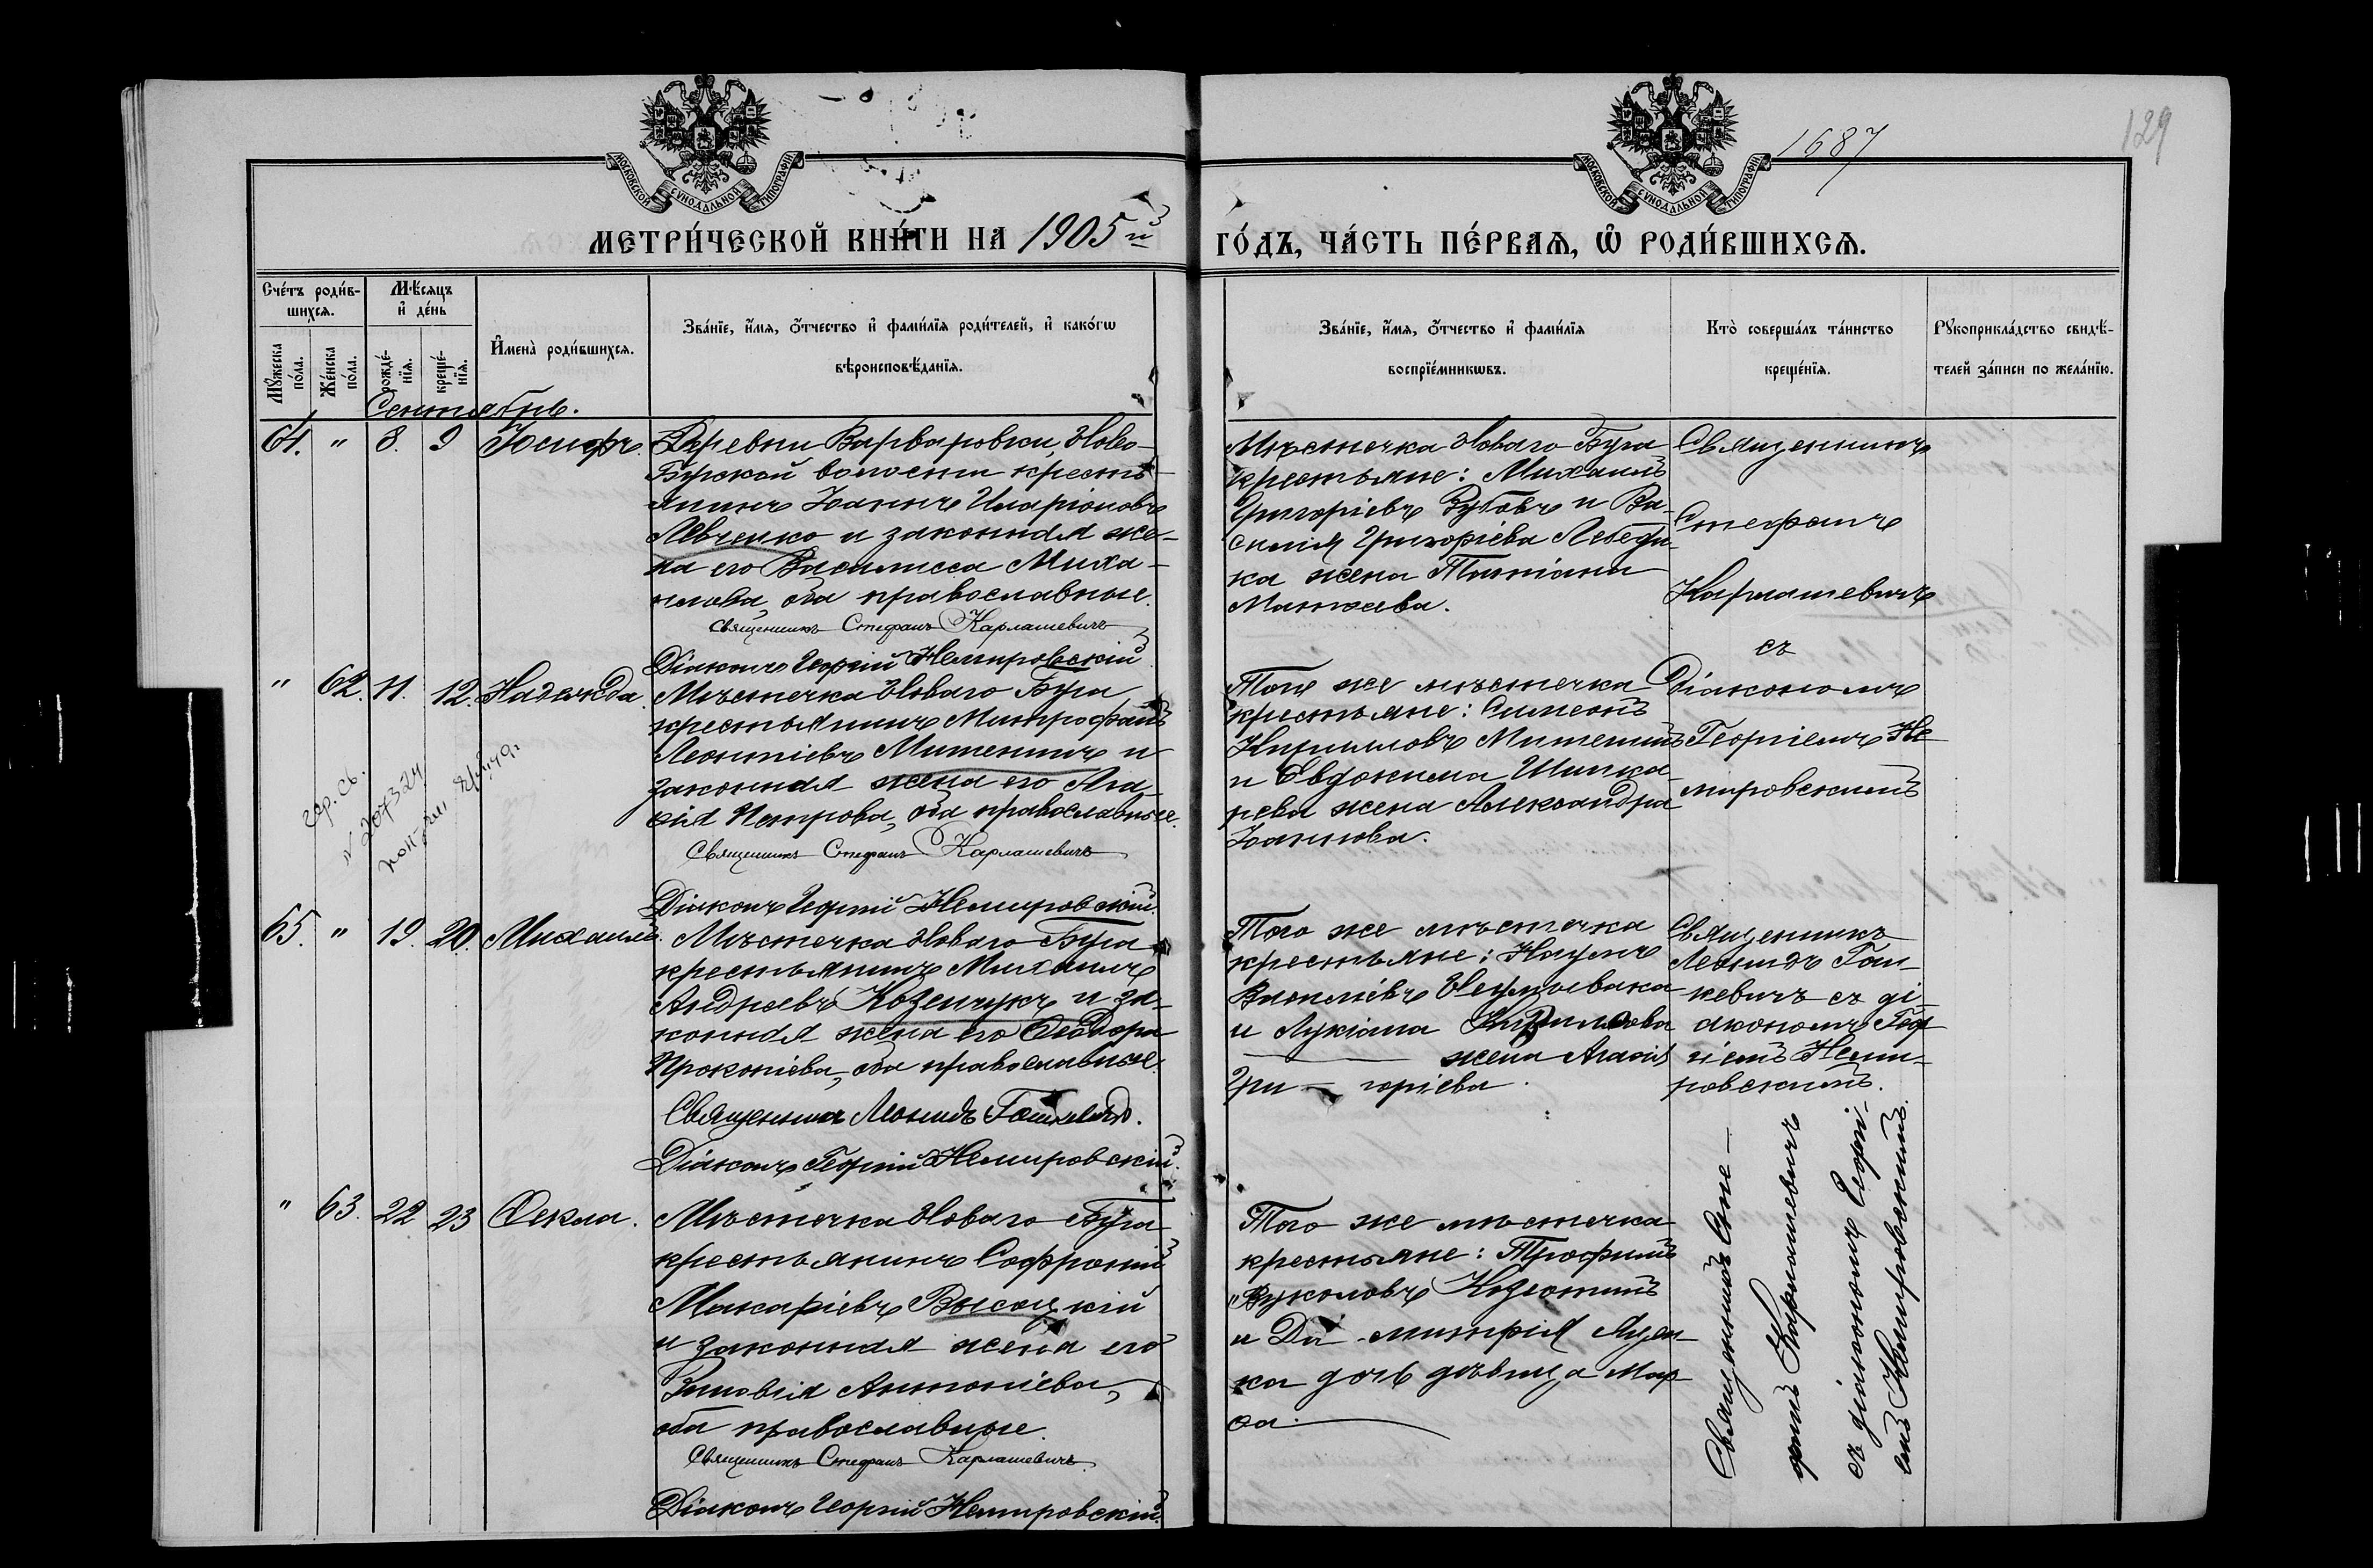 МОСКОВСКОЙ СѴНОДАЛЬНОЙ ТИПОГРАФІИ
МОСКОВСКОЙ СѴНОДАЛЬНОЙ ТИПОГРАФІИ
1687
129
МЕТРИ́ЧЕСКОЙ КНИ́ГИ НА 1905й
ГО́ДЪ, ЧА́СТЬ ПЕ́РВАѦ, Ѡ҆ РОДИ́ВШИХСѦ.
Сче́тъ роди́в-
шихсѧ.
Мꙋ́жеска по́ла.
Же́нска по́ла.
Мѣ́сѧцъ
и҆ де́нь
рожде́-
нїѧ.
креще́-
нїѧ.
И҆мена̀ роди́вшихсѧ.
Зва́нїе, и҆́мѧ, ѻ҆́тчество и҆ фами́лїѧ роди́телей, и҆ како́гѡ
вѣроисповѣ́данїѧ.
Зва́нїе, и҆́мѧ, ѻ҆́тчество и҆ фами́лїѧ
воспрїе́мникѡвъ.
Кто̀ соверша́лъ та́инство
креще́нїѧ.
Рꙋкоприкла́дство свидѣ́-
телей за́писи по жела́нїю.
Сентябрь.
64. " 8. 9 Іосифъ.
Деревни Варваровки, Ново-
Бугской волости крестья-
нинъ Іоаннъ Иларіоновъ
Левченко и законная же-
на его Василисса Миха-
илова, оба православные.
Священникъ Стефанъ Карлашевичъ
Діаконъ Георгій Немировскій
Мѣстечка Новаго Буга
крестьяне: Михаилъ
Григоріевъ Зубовъ и Ва-
силія Григоріева
ка жена Татіана
Матѳеева.
Священникъ
Стефанъ
Карлашевичъ
съ
Діакономъ
Георгіемъ Не
мировскимъ
" 62. 11. 12. Надежда.
Мѣстечка Новаго Буга
крестьянинъ Митрофанъ
Леонтіевъ Митенинъ и
законная жена его Ага-
ѳія Петрова, оба православные.
Священникъ Стефанъ Карлашевичъ
Діаконъ Георгій Немировскій.
Того же мѣстечка
крестьяне: Симеонъ
Кирилловъ Митенинъ
и Евдокима Шинка-
рева жена Александра
Іоаннова.
65. " 19. 20. Михаилъ.
Мѣстечка Новаго Буга
крестьянинъ Михаилъ
Андреевъ Козенчукъ и за-
конная жена его Ѳеодора
Прокопіева, оба православные.
Священникъ Леонидъ Гошкевичъ.
Діаконъ Георгій Немировскій.
Того же мѣстечка
крестьяне: Наумъ
Василіевъ
и Лукіана
жена Агаѳія
Гри- горіева.
Священникъ
Леонидъ Гош-
кевичъ съ ді-
акономъ Геор-
гіемъ Неми-
ровскимъ.
" 63. 22 23 Ѳекла.
Мѣстечка Новаго Буга
крестьянинъ Софроній
Макаріевъ Высоцкій
и законная жена его
Зиновія Антоніева,
оба православные.
Священникъ Стефанъ Карлашевичъ
Діаконъ Георгій Немировскій.
Того же мѣстечка
крестьяне: Трофимъ
Вуколовъ
и Ди митрія
ка дочь дѣвица Мар
ѳа.
Священникъ Сте-
фанъ Карлашевичъ
съ діакономъ Георгі-
емъ Немировскимъ.